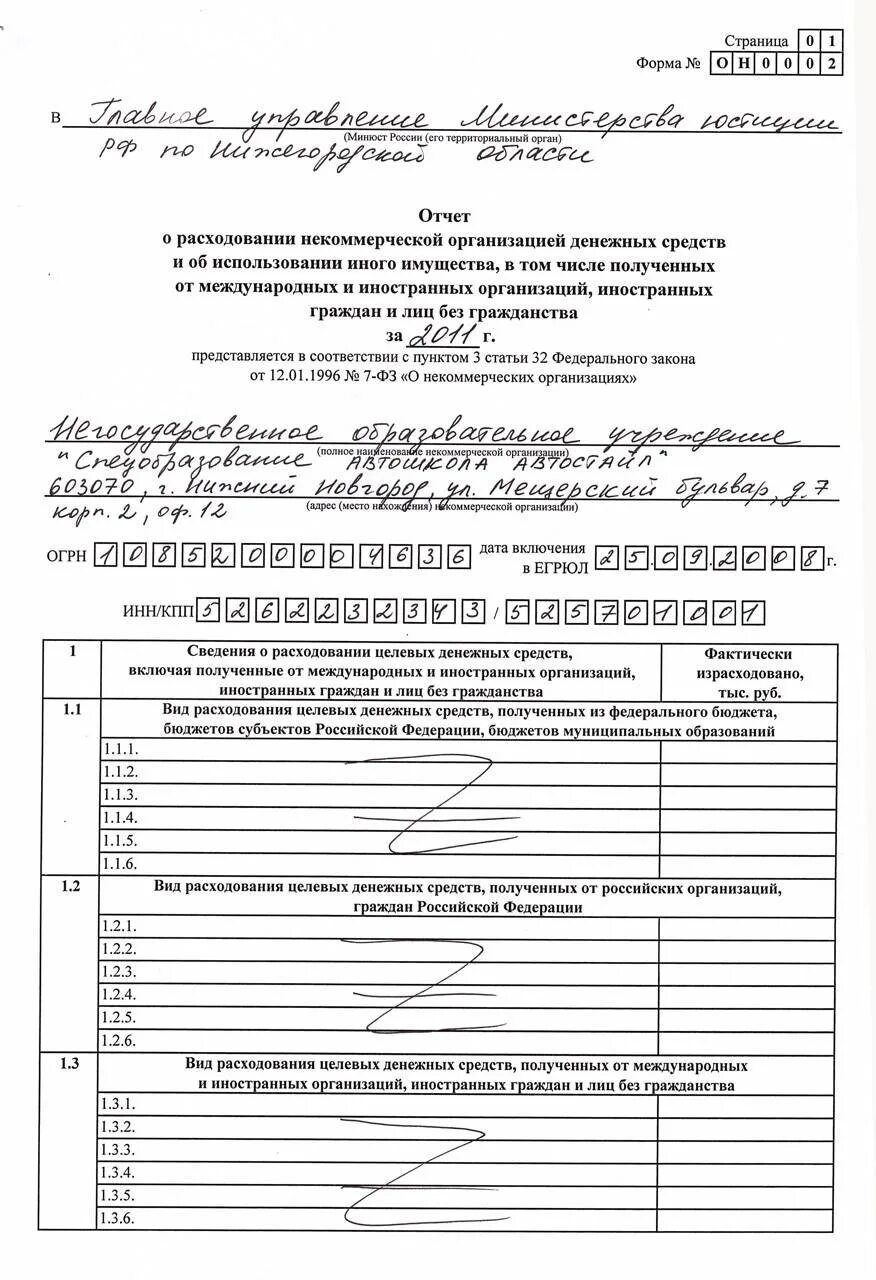 Страница 0 1
Форма № О Н 0 0 0 2
В Главное управление Министерства юстиции
(Минюст России (его территориальный орган)
РФ по Нижегородской области
Отчет
о расходовании некоммерческой организацией денежных средств
и об использовании иного имущества, в том числе полученных
от международных и иностранных организаций, иностранных
граждан и лиц без гражданства
за 2011 г.
представляется в соответствии с пунктом 3 статьи 32 Федерального закона
от 12.01.1996 № 7-ФЗ «О некоммерческих организациях»
Негосударственное образовательное учреждение
(полное наименование некоммерческой организации)
"Спецобразование АВТОШКОЛА АВТОСТАЙЛ"
603070, г. Нижний Новгород, ул. Мещерский бульвар, д. 7
(адрес (место нахождения) некоммерческой организации)
корп. 2, оф. 12
ОГРН 1 0 8 5 2 0 0 0 0 4 6 3 6 дата включения в ЕГРЮЛ 2 5 . 0 9 . 2 0 0 8 г.
ИНН/КПП 5 2 6 2 2 3 2 3 4 3 / 5 2 5 7 0 1 0 0 1
1 Сведения о расходовании целевых денежных средств, Фактически
включая полученные от международных и иностранных организаций, израсходовано,
иностранных граждан и лиц без гражданства тыс. руб.
1.1 Вид расходования целевых денежных средств, полученных из федерального бюджета,
бюджетов субъектов Российской Федерации, бюджетов муниципальных образований
1.1.1.
1.1.2.
1.1.3.
1.1.4.
1.1.5.
1.1.6.
1.2 Вид расходования целевых денежных средств, полученных от российских организаций,
граждан Российской Федерации
1.2.1.
1.2.2.
1.2.3.
1.2.4.
1.2.5.
1.2.6.
1.3 Вид расходования целевых денежных средств, полученных от международных
и иностранных организаций, иностранных граждан и лиц без гражданства
1.3.1.
1.3.2.
1.3.3.
1.3.4.
1.3.5.
1.3.6.